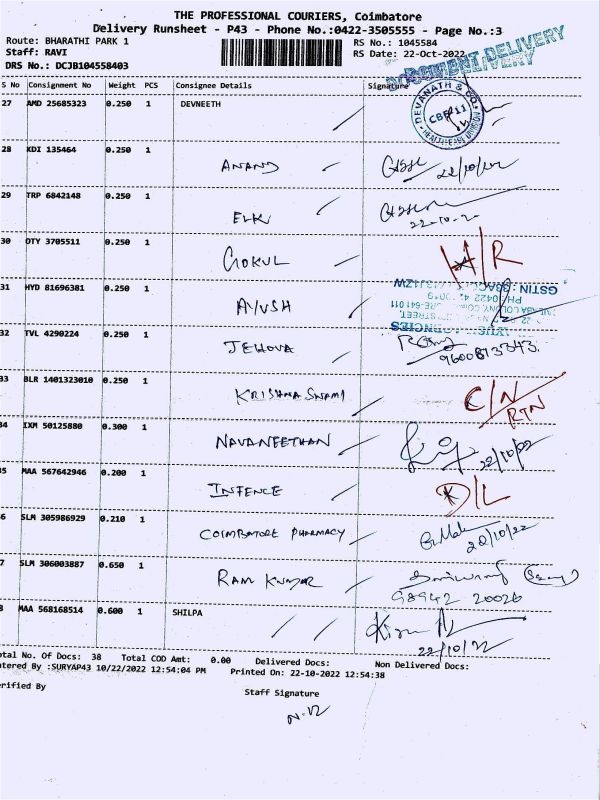 THE PROFESSIONAL COURIERS, Coimbatore
Delivery Runsheet - P43 - Phone No.:0422-3505555 - Page No.:3
Route: BHARATHI PARK 1 RS No.: 1045584
Staff: RAVI RS Date: 22-Oct-2022
DRS No.: DCJB104558403
DOCUMENT DELIVERY
S No Consignment No Weight PCS Consignee Details Signature
DEVANATH & CO.
CBE-11
27 AMD 25685323 0.250 1 DEVNEETH
28 KDI 135464 0.250 1 ANAND 22/10/22
29 TRP 6842148 0.250 1 22-10-2
30 OTY 3705511 0.250 1 GOKUL H/R
31 HYD 81696381 0.250 1 AYUSH
GSTIN:
32 TVL 4290224 0.250 1 JEHOVA 9600813343.
33 BLR 1401323010 0.250 1 KRISHNA SWAMI C/N RTN
34 IXM 50125880 0.300 1 NAVANEETHAN 22/10/22
35 MAA 567642946 0.200 1 INFENCE D/L
6 SLM 305986929 0.210 1 COIMBATORE PHARMACY 22/10/22
7 SLM 306003887 0.650 1 RAM KUMAR
98942 20026
8 MAA 568168514 0.600 1 SHILPA
22/10/22
otal No. Of Docs: 38 Total COD Amt: 0.00 Delivered Docs: Non Delivered Docs:
ntered By :SURYAP43 10/22/2022 12:54:04 PM Printed On: 22-10-2022 12:54:38
erified By Staff Signature